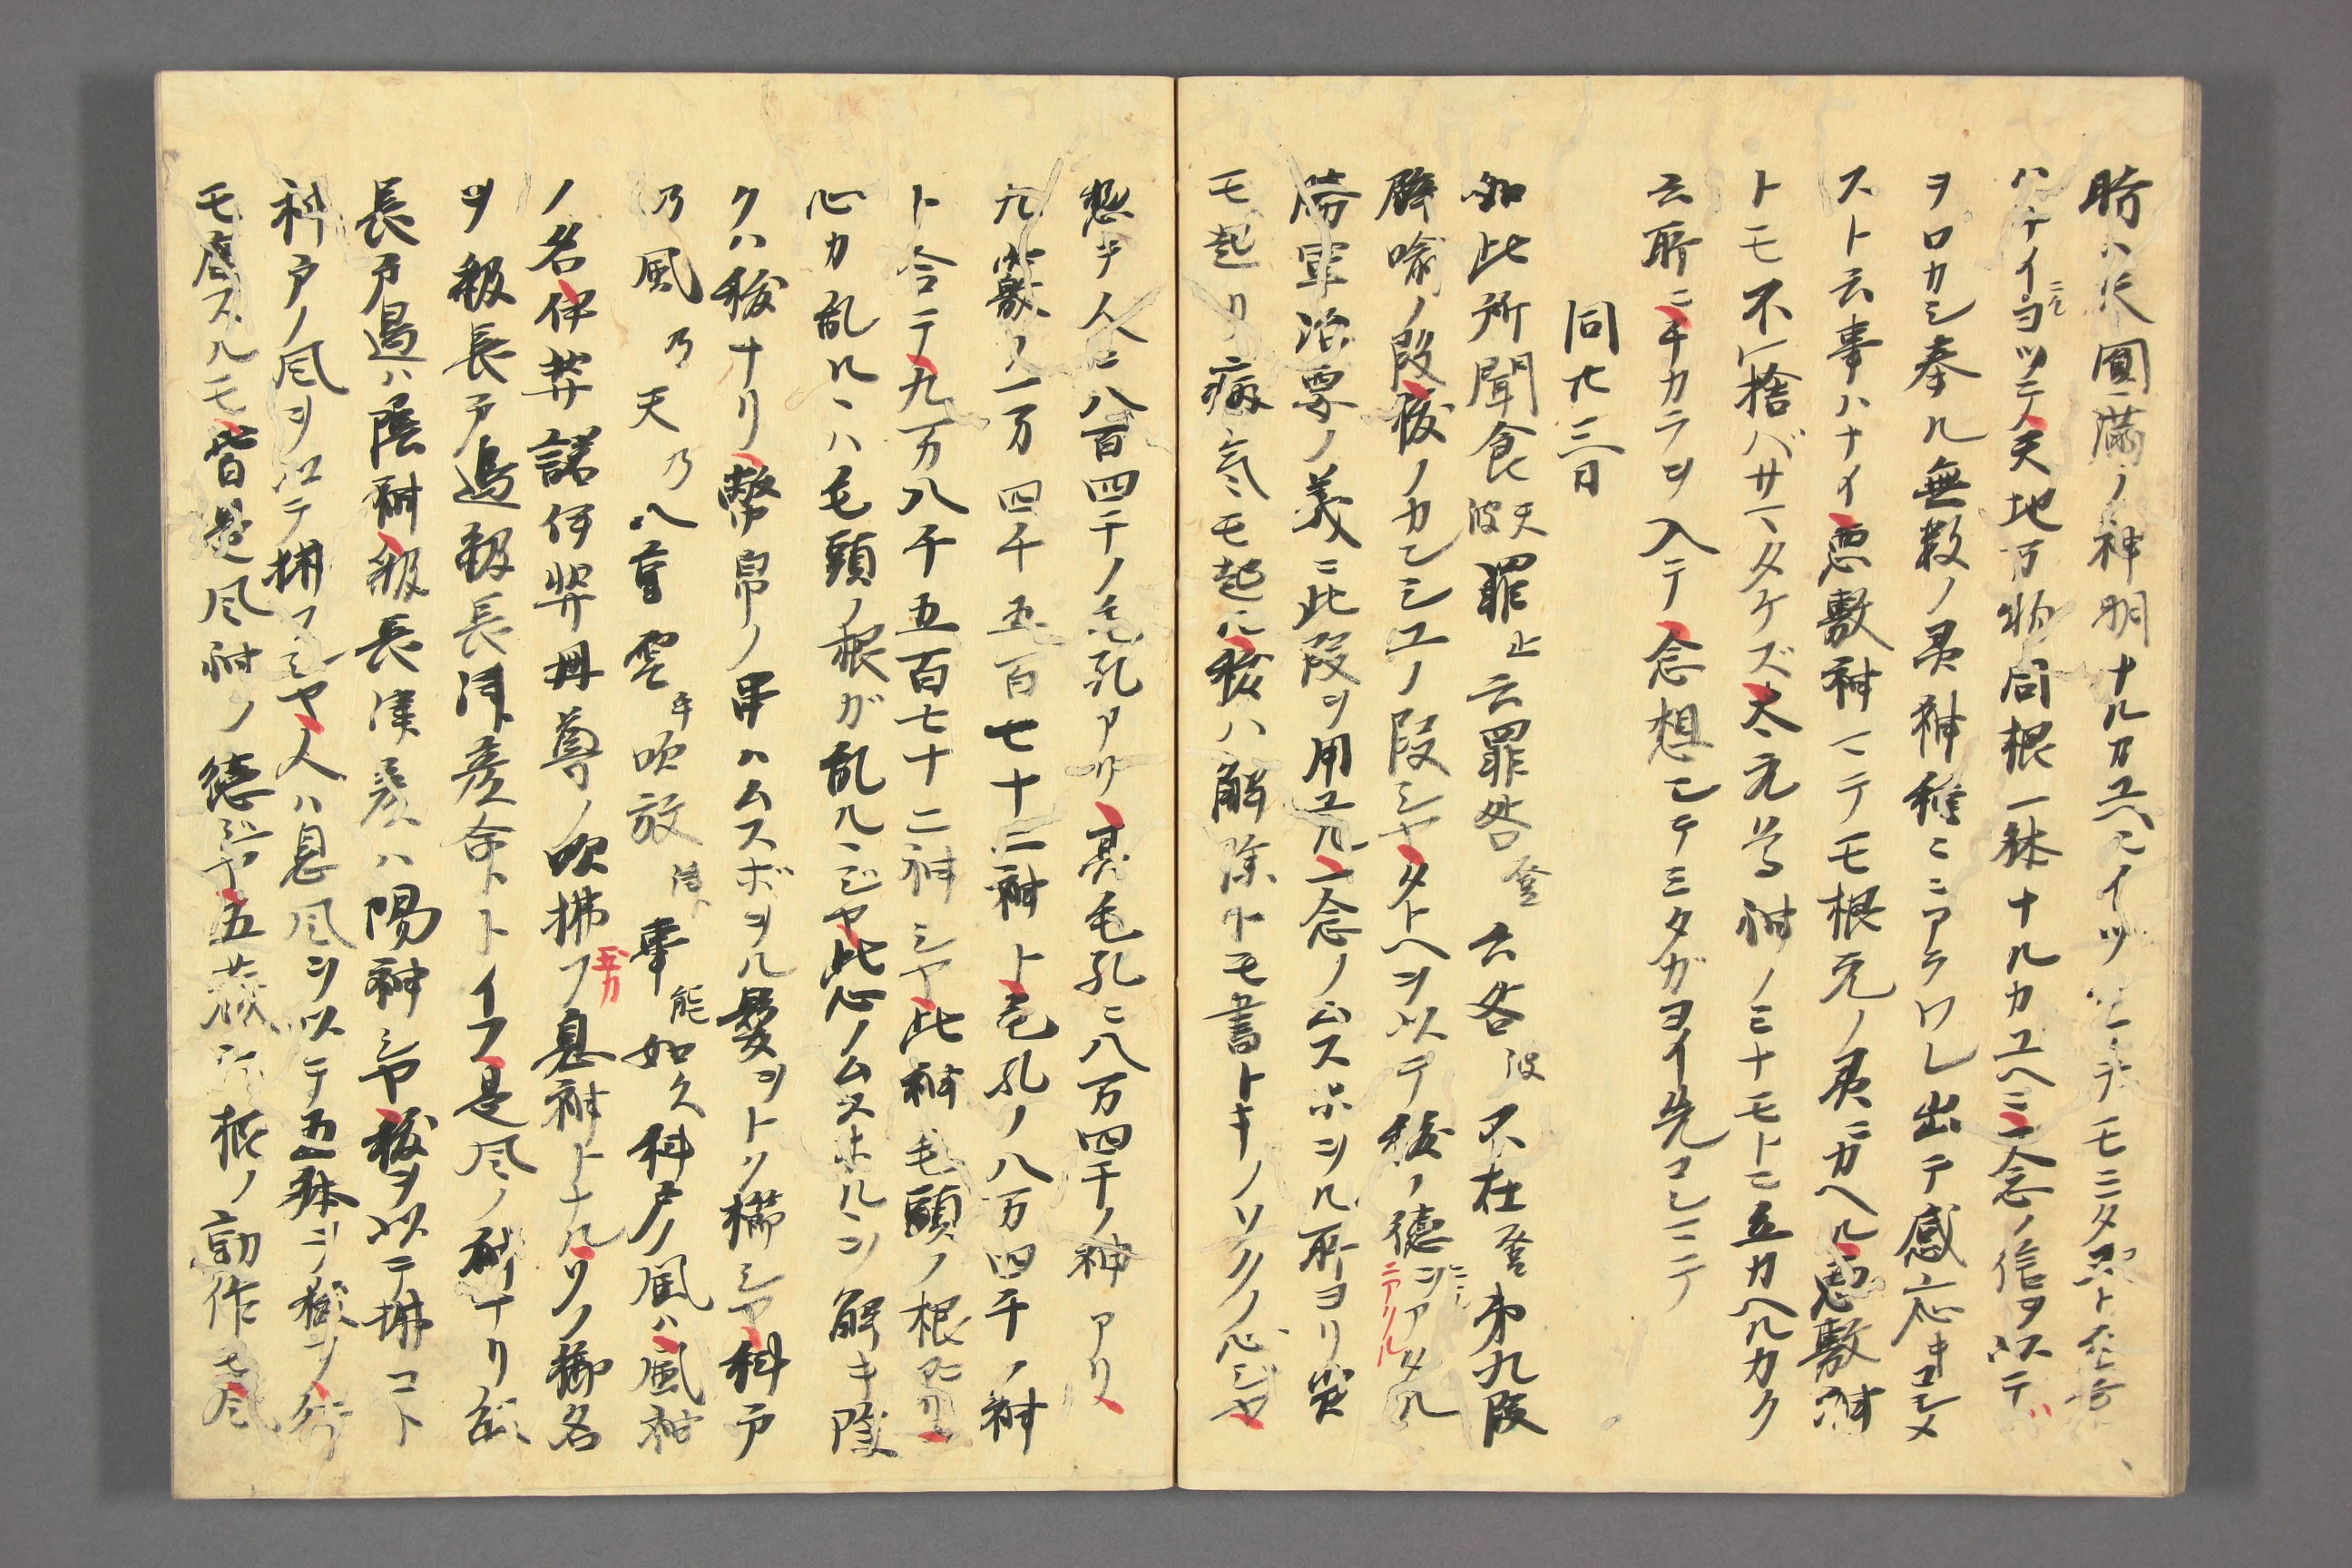 時ハ円圓滿ノ神明ナルカユヘニイツ
ハナイヨツテ天地万物同根一躰ナルカユヘニ一念ノ信ヲ以テ
ヲロカシ奉ル無数ノ灵神種ニニアラワレ出テ感応キコシメ
スト云事ハナイ悪敷神ニテモ根元ノ灵ニカヘル悪敷神
トモ不捨バサマタケズ太元尊神ノミナモトニ立カヘルカク
云所ニチカラヲ入テ念想シテミタガヨイ先コレニテ
同廿三日
如此所聞食天波罪止云罪咎登云咎波不在登第九段
解喩ノ段祓ノカンジユノ段シヤタトヘヲ以テ祓ノ德ニアタル
勝軍治要ノ義ニ此段ヲ用ユル一念ノムスボヲル所ヨリ災
モ起リ病氣モ起ル祓ハ解除トモ書トキノソクノ心シヤ
惣テ人ニ八百四千ノ毛孔アリ其毛孔ニ八万四千ノ神アリ
九竅ノ一万四千五百七十二神ト毛孔ノ八万四千ノ神
ト合テ九万八千五百七十二神シヤ此神毛頭ノ根ニアリ
心カ乱ルヽハ毛頭ノ根ガ乱ルヽジヤ此心ノムスホルヽヲ解キ除
クハ祓ナリ幣帛ノ串ハムスボヲル髮ヲトク櫛シヤ科戸
乃風乃天乃八重雲乎吹放津事能如久科戸ノ風ハ風神
ノ名伊弉諾伊弉冊尊ノ吹拂フ息神トナルソノ御名
ヲ級長戸邊級長津彦命トイフ是風ノ神ナリ
長戸邊ハ陰神級長津彦ハ陽神シヤ祓ヲ以テ拂コト
科戸ノ风ヲ以テ拂フシヤ人ハ息风ヲ以テ五躰ヲ
モ磨スルモ皆是风神ノ徳ジヤ五藏六根ノ動作モ风